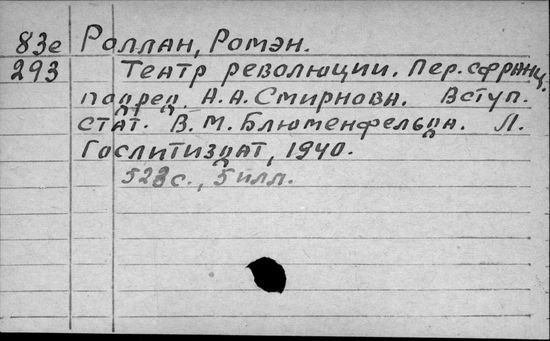 83е Роллан, Ромэн.
293 Театр революции. Пер. с франц.
под ред. А.А. Смирнова. Вступ.
стат. В.М. Блюменфельда. Л.
Гослитиздат, 1940.
528 с., 5 илл.